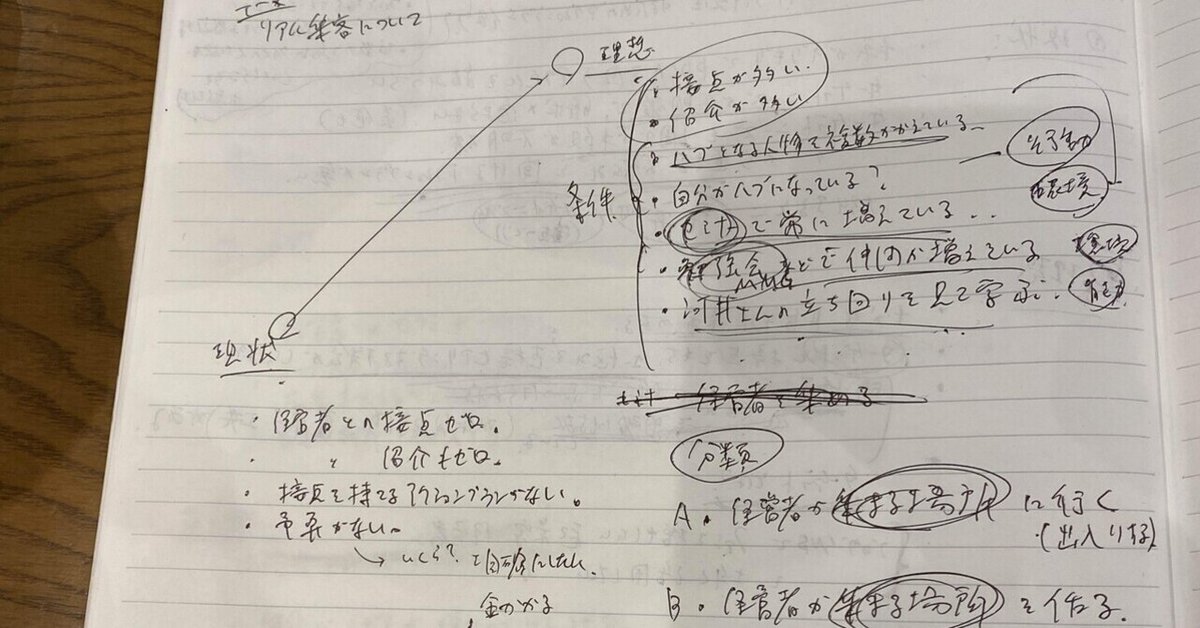 リアル集客について
理想
・接点が多い.
・紹介が多い
条件
・ハブとなる人物で複数かかえている
・自分がハブになっている?
・セミナーで常に増えている..
・勉強会などで仲間が増えている
環境
・河井さんの立ち回りを見て学ぶ.
現状
・経営者との接点ゼロ.
・〃 紹介もゼロ.
・接点を持てるアクションプランがない。
・予算がない。
→ いくら? 明確にしたい.
金のかかる
経営者を集める
分類
A. 経営者が集まる場所に行く
(出入りする)
B. 経営者が集まる場所を作る.